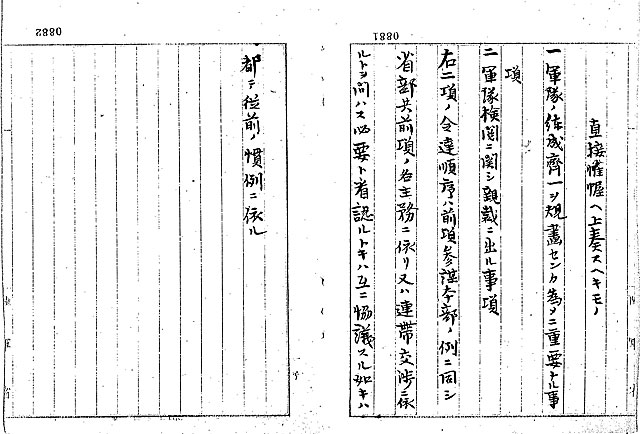 0881
直接帷幄ヘ上奏スヘキモノ
一軍隊ノ練成齊一ヲ規畫センカ為メニ重要ナル事
項
二軍隊検閲ニ関シ親裁ニ出ル事項
右二項ノ令達順序ハ前項参謀本部ノ例ニ同シ
省部共前項ノ各主務ニ依リ又ハ連帯交渉ニ係
ルトヲ問ハス必要ト看認ルトキハ互ニ協議スル如キハ
0882
都テ従前ノ慣例ニ依ル